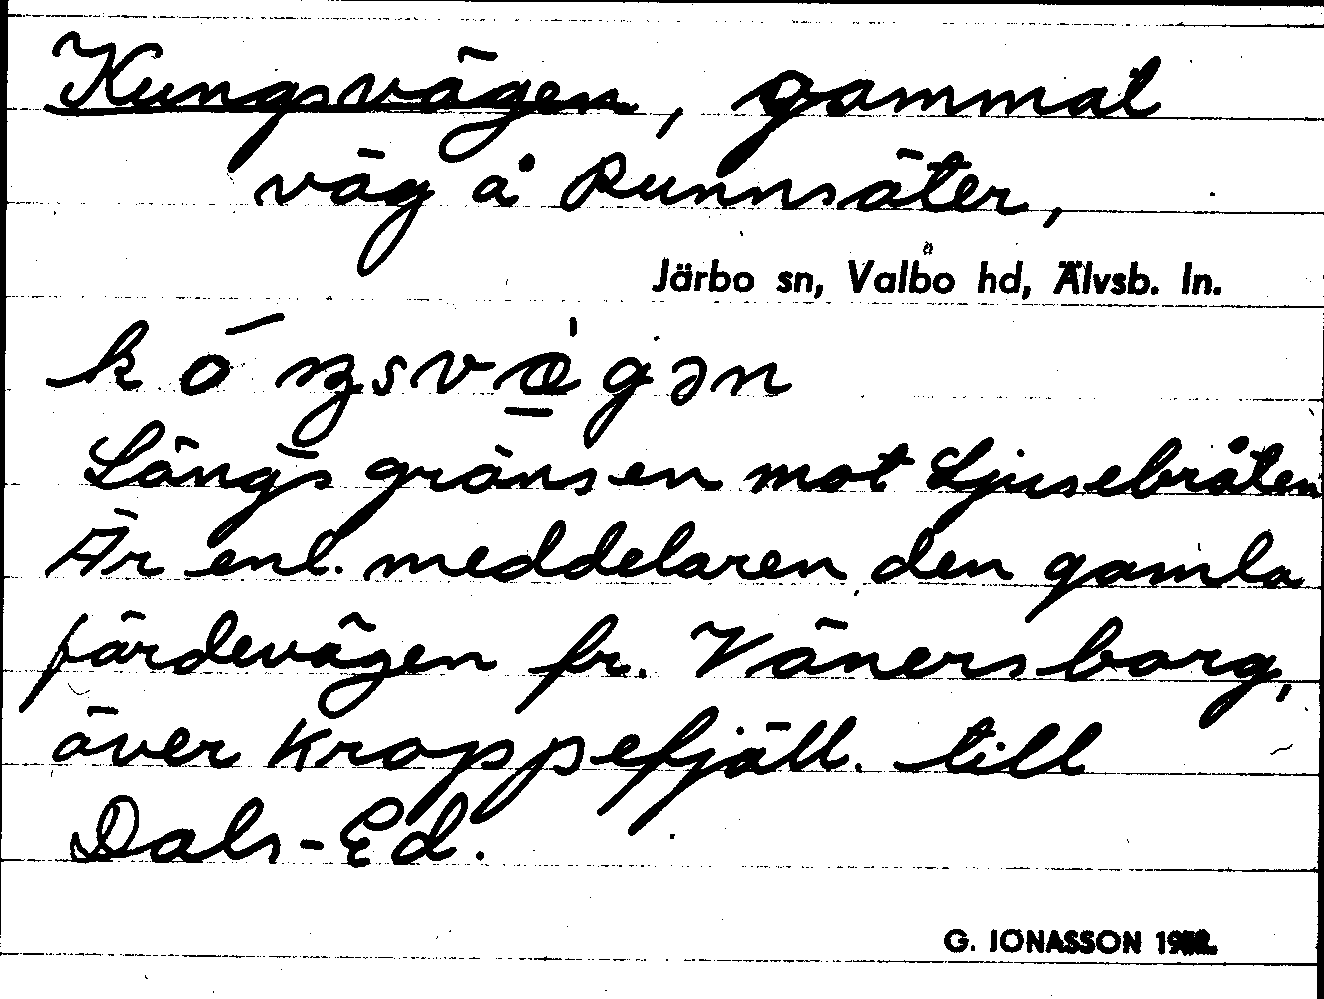 Kungsvägen, gammal
väg å Runnsäter,
Järbo sn, Valbo hd, Älvsb. ln.
kó̄ŋsvæ̀gən
Längs gränsen mot Ljusebråten
Är enl. meddelaren den gamla
färdevägen fr. Vänersborg,
över Kroppefjäll. till
Dals-Ed.
G. JONASSON